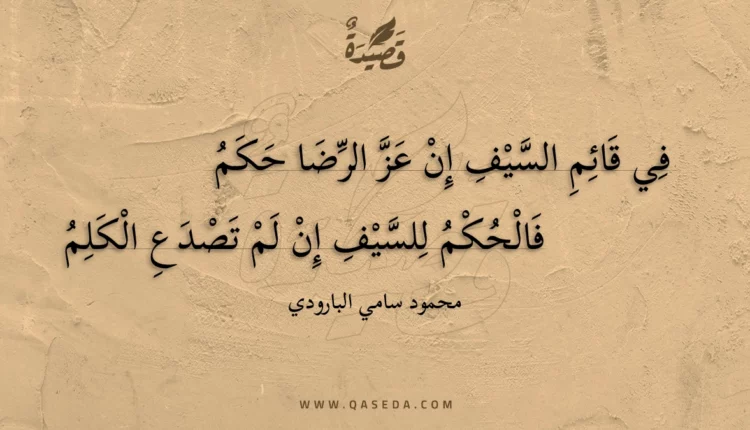 قَصِيدَةٌ
فِي قَائِمِ السَّيْفِ إِنْ عَزَّ الرِّضَا حَكَمُ
فَالْحُكْمُ لِلسَّيْفِ إِنْ لَمْ تَصْدَعِ الْكَلِمُ
محمود سامي البارودي
WWW.QASEDA.COM